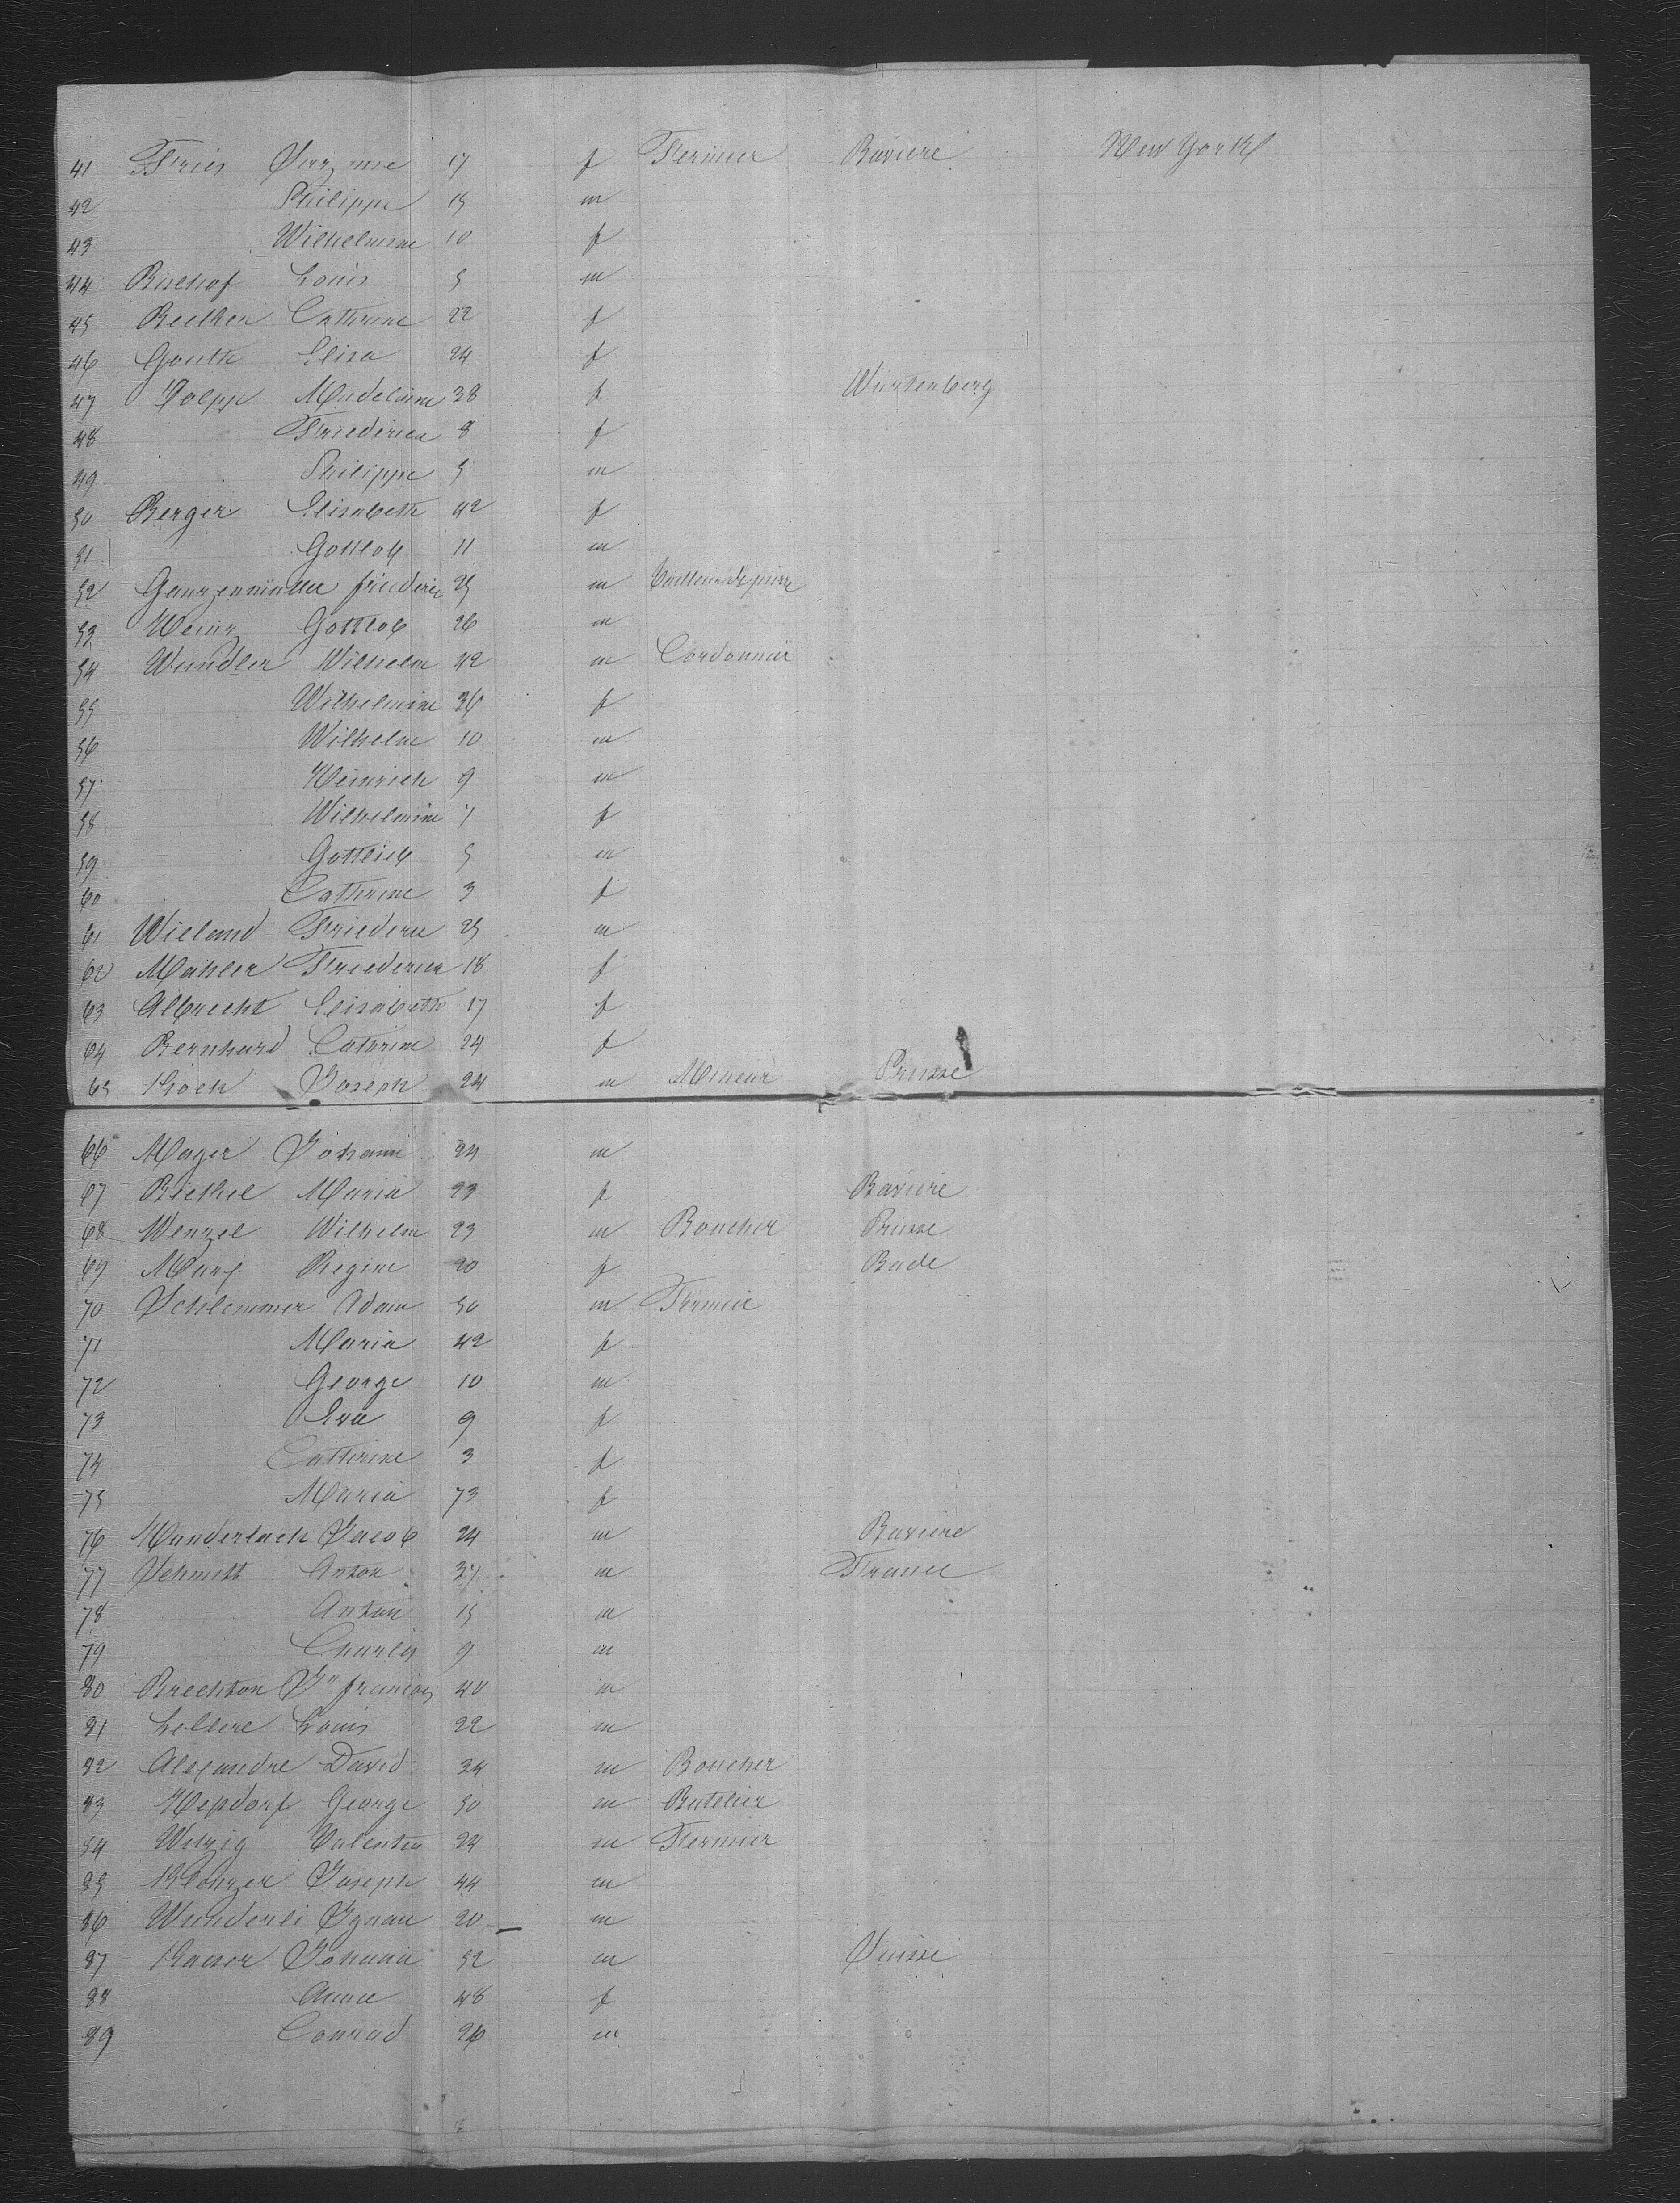 41 Fries Suzanne 17 f Fermier Baviere New York
42 Philippe 15 m
43 Wilhelmine 10 f
44 Bischof Louis 5 m
45 Becker Cathrine 22 f
46 Gouth Elisa 24 f
47 Madeleine 38 f Wurtemberg
48 Friederica 8 f
49 Philippe 5 m
50 Berger Elisabeth 42 f
51 Gottlob 11 m
52 Ganzenmüller friederic 25 m Tailleur de pierre
53 Gottlob 26 m
54 Wendler Wilhelm 42 m Cordonnier
55 Wilhelmine 36 f
56 Wilhelm 10 m
57 Heinrich 9 m
58 Wilhelmine 7 f
59 Gottlieb 5 m
60 Cathrine 3 f
61 Wieland Friederic 25 m
62 Mahler Friederica 18 f
63 Albrecht Elisabeth 17 f
64 Bernhard Catrine 24 f
65 Koch Joseph 24 m Mineur Prusse
66 Mayer Johann 24 m
67 Bickel Maria 23 f Baviere
68 Wenzel Wilhelm 23 m Boucher Prusse
69 Marx Regine 20 f Bade
70 Schlemmer Adam 50 m Fermier
71 Maria 42 f
72 George 10 m
73 Eva 9 f
74 Cathrine 3 f
75 Maria 73 f
76 Manderlach Jacob 24 m Baviere
77 Schmitt Anton 37 m France
78 Anton 15 m
79 Charles 9 m
80 Brechton Jn francois 40 m
81 Louis 22 m
82 Alexandre David 34 m Boucher
83 Hepdorf George 50 m Batelier
84 Witzig Valentin 24 m Fermier
85 Joseph 44 m
86 Wunderli Ignau 20 m
87 Kaiser Johann 52 m Suisse
88 Anna 48 f
89 Conrad 26 m